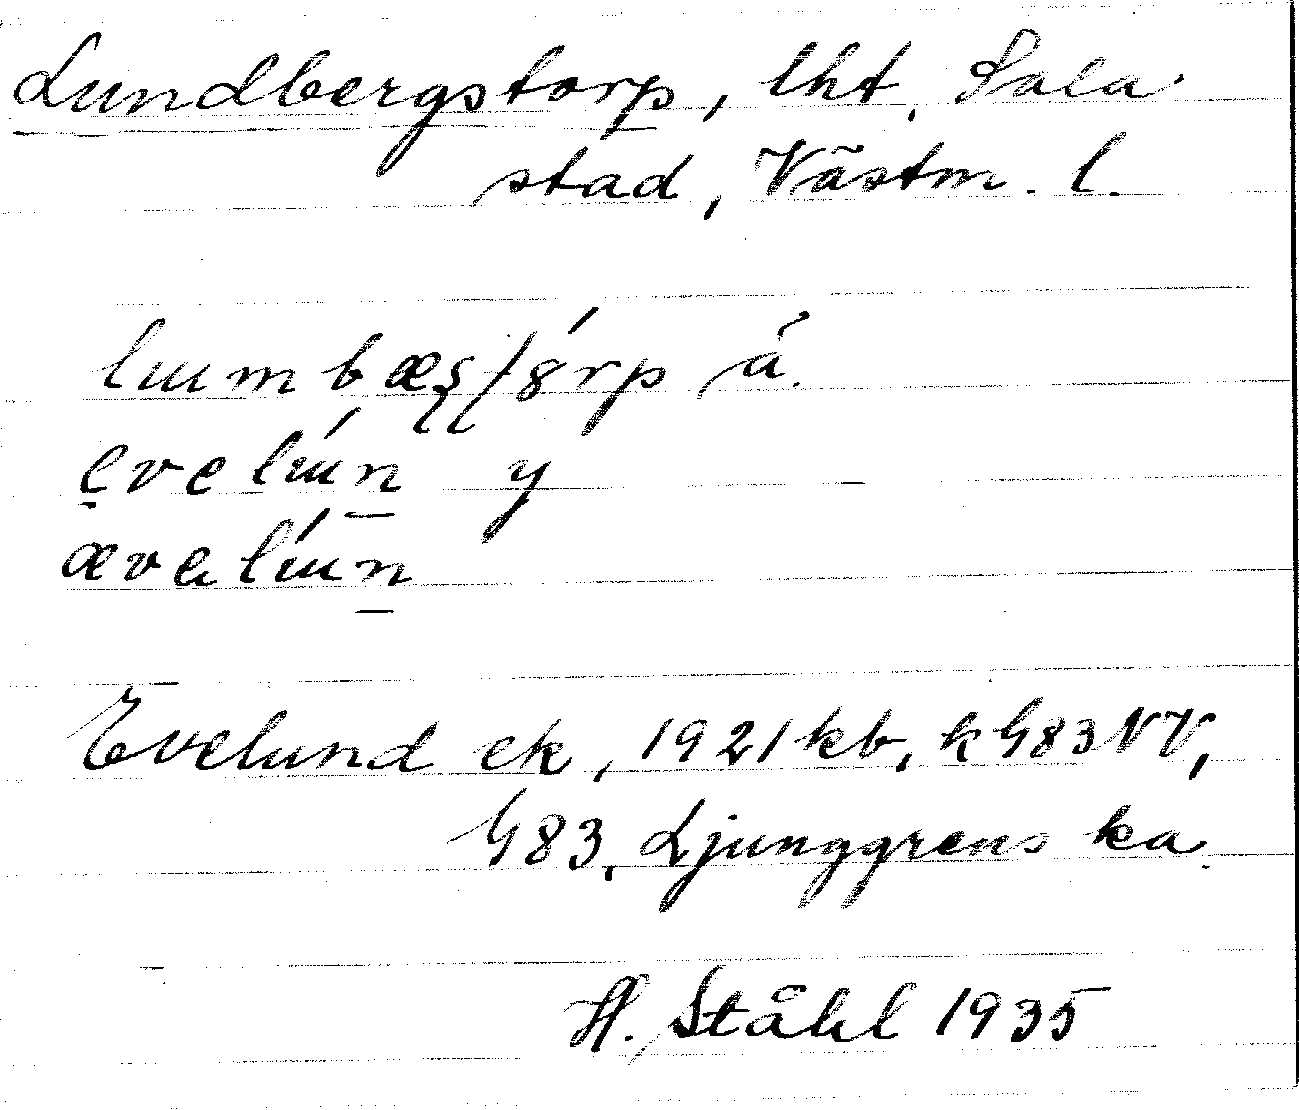 Lundbergstorp, lht, Sala
stad, Västm. l.
á.
evelún y
ævelún
Evelund ek, 1921 kb, k G83 NV,
G83, Ljunggrens ka.
H. Ståhl 1935